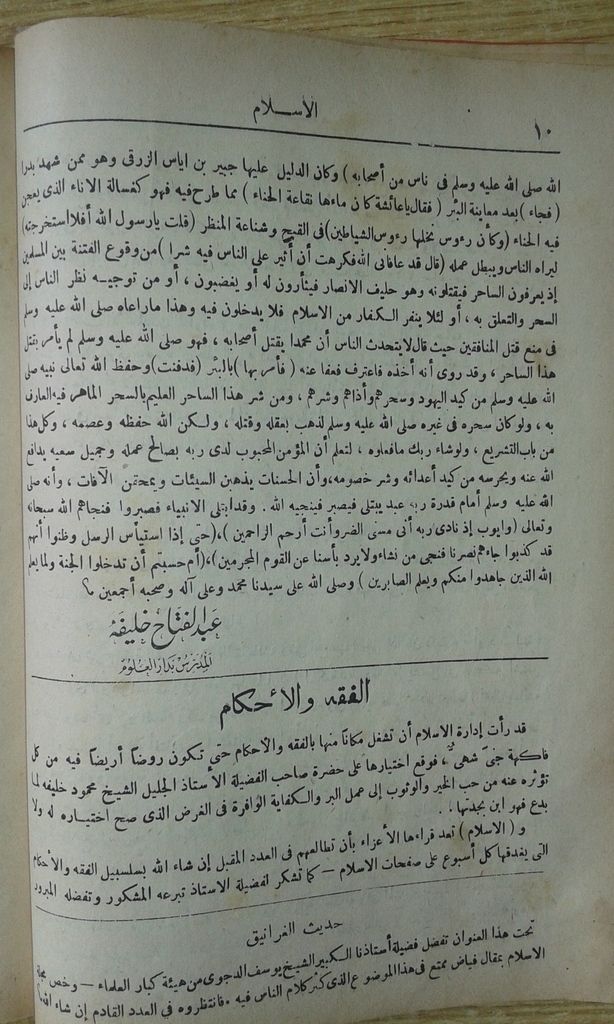 الاسلام
١٠
الله صلى الله عليه وسلم فى ناس من أصحابه ) وكان الدليل عليها جبير بن اياس الزرقى وهو ممن شهد بدرا
( فجاء ) بعد معاينة البئر ( فقال ياعائشة كان ماءها نقاعة الحناء ) مما طرح فيه فهو كغسالة الاناء الذى يعجن
فيه الحناء ( وكأن رءوس نخلها رءوس الشياطين ) فى القبح وشناعة المنظر ( قلت يارسول الله أفلا استخرجته )
ليراه الناس ويبطل عمله ( قال قد عافانى الله فكرهت أن أثير على الناس فيه شرا ) من وقوع الفتنة بين المسلمين
إذ يعرفون الساحر فيقتلونه وهو حليف الانصار فيثأرون له أو يغضبون ، أو من توجيه نظر الناس إلى
السحر والتعلق به ، أو لئلا ينفر الكفار من الاسلام فلا يدخلون فيه وهذا ماراعاه صلى الله عليه وسلم
فى منع قتل المنافقين حيث قال لايتحدث الناس أن محمدا يقتل أصحابه ، فهو صلى الله عليه وسلم لم يأمر بقتل
هذا الساحر ، وقد روى أنه أخذه فاعترف فعفا عنه ( فأمر بها ) بالبئر ( فدفنت ) وحفظ الله تعالى نبيه صلى
الله عليه وسلم من كيد اليهود وسحرهم وأذاهم وشرهم ، ومن شر هذا الساحر العليم بالسحر الماهر فيه العارف
به ، ولو كان سحره فى غيره صلى الله عليه وسلم لذهب بعقله وقتله ، ولكن الله حفظه وعصمه ، وكل هذا
من باب التشريع ، ولوشاء ربك مافعلوه ، لتعلم أن المؤمن المحبوب لدى ربه بصالح عمله وجميل سعيه يدافع
الله عنه ويحرسه من كيد أعدائه وشر خصومه، وأن الحسنات يذهبن السيئات ويمحقن الآفات ، وأنه صلى
الله عليه وسلم أمام قدرة ربه عبد يبتلى فيصبر فينجيه الله . وقد ابتلى الانبياء فصبروا فنجاهم الله سبحانه
وتعالى ( وايوب إذ نادى ربه أنى مسنى الضر وأنت أرحم الراحمين )، ( حتى إذا استيأس الرسل وظنوا أنهم
قد كذبوا جاءهم نصرنا فنجى من نشاء ولا يرد بأسنا عن القوم المجرمين )، ( أم حسبتم أن تدخلوا الجنة ولما يعلم
الله الذين جاهدوا منكم ويعلم الصابرين ) وصلى الله على سيدنا محمد وعلى آله وصحبه أجمعين
عبد الفتاح خليفه
المدرس بدار العلوم
الفقه والأحكام
قد رأت إدارة الاسلام أن تشغل مكانا منها بالفقه والأحكام حتى تكون روضا أريضا فيه من كل
فاكهة جنىّ شهىّ ، فوقع اختيارها على حضرة صاحب الفضيلة الأستاذ الجليل الشيخ محمود خليفه لما
تؤثره عنه من حب الخير والوثوب إلى عمل البر والكفاية الوافرة فى الغرض الذى صح اختياره له ولا
بدع فهو ابن بجدتها .
و ( الاسلام ) تعد قراءها الأعزاء بأن تطالعهم فى العدد المقبل إن شاء الله بسلسبيل الفقه والأحكام
التى يغدقها كل أسبوع على صفحات الاسلام – كما تشكر لفضيلة الاستاذ تبرعه المشكور وتفضله المبرور
حديث الغرانيق
تحت هذا العنوان تفضل فضيلة أستاذنا الكبير الشيخ يوسف الدجوى من هيئة كبار العلماء – وخص مجلة
الاسلام بمقال فياض ممتع فى هذا الموضوع الذى كثر كلام الناس فيه . فانتظروه فى العدد القادم إن شاء الله